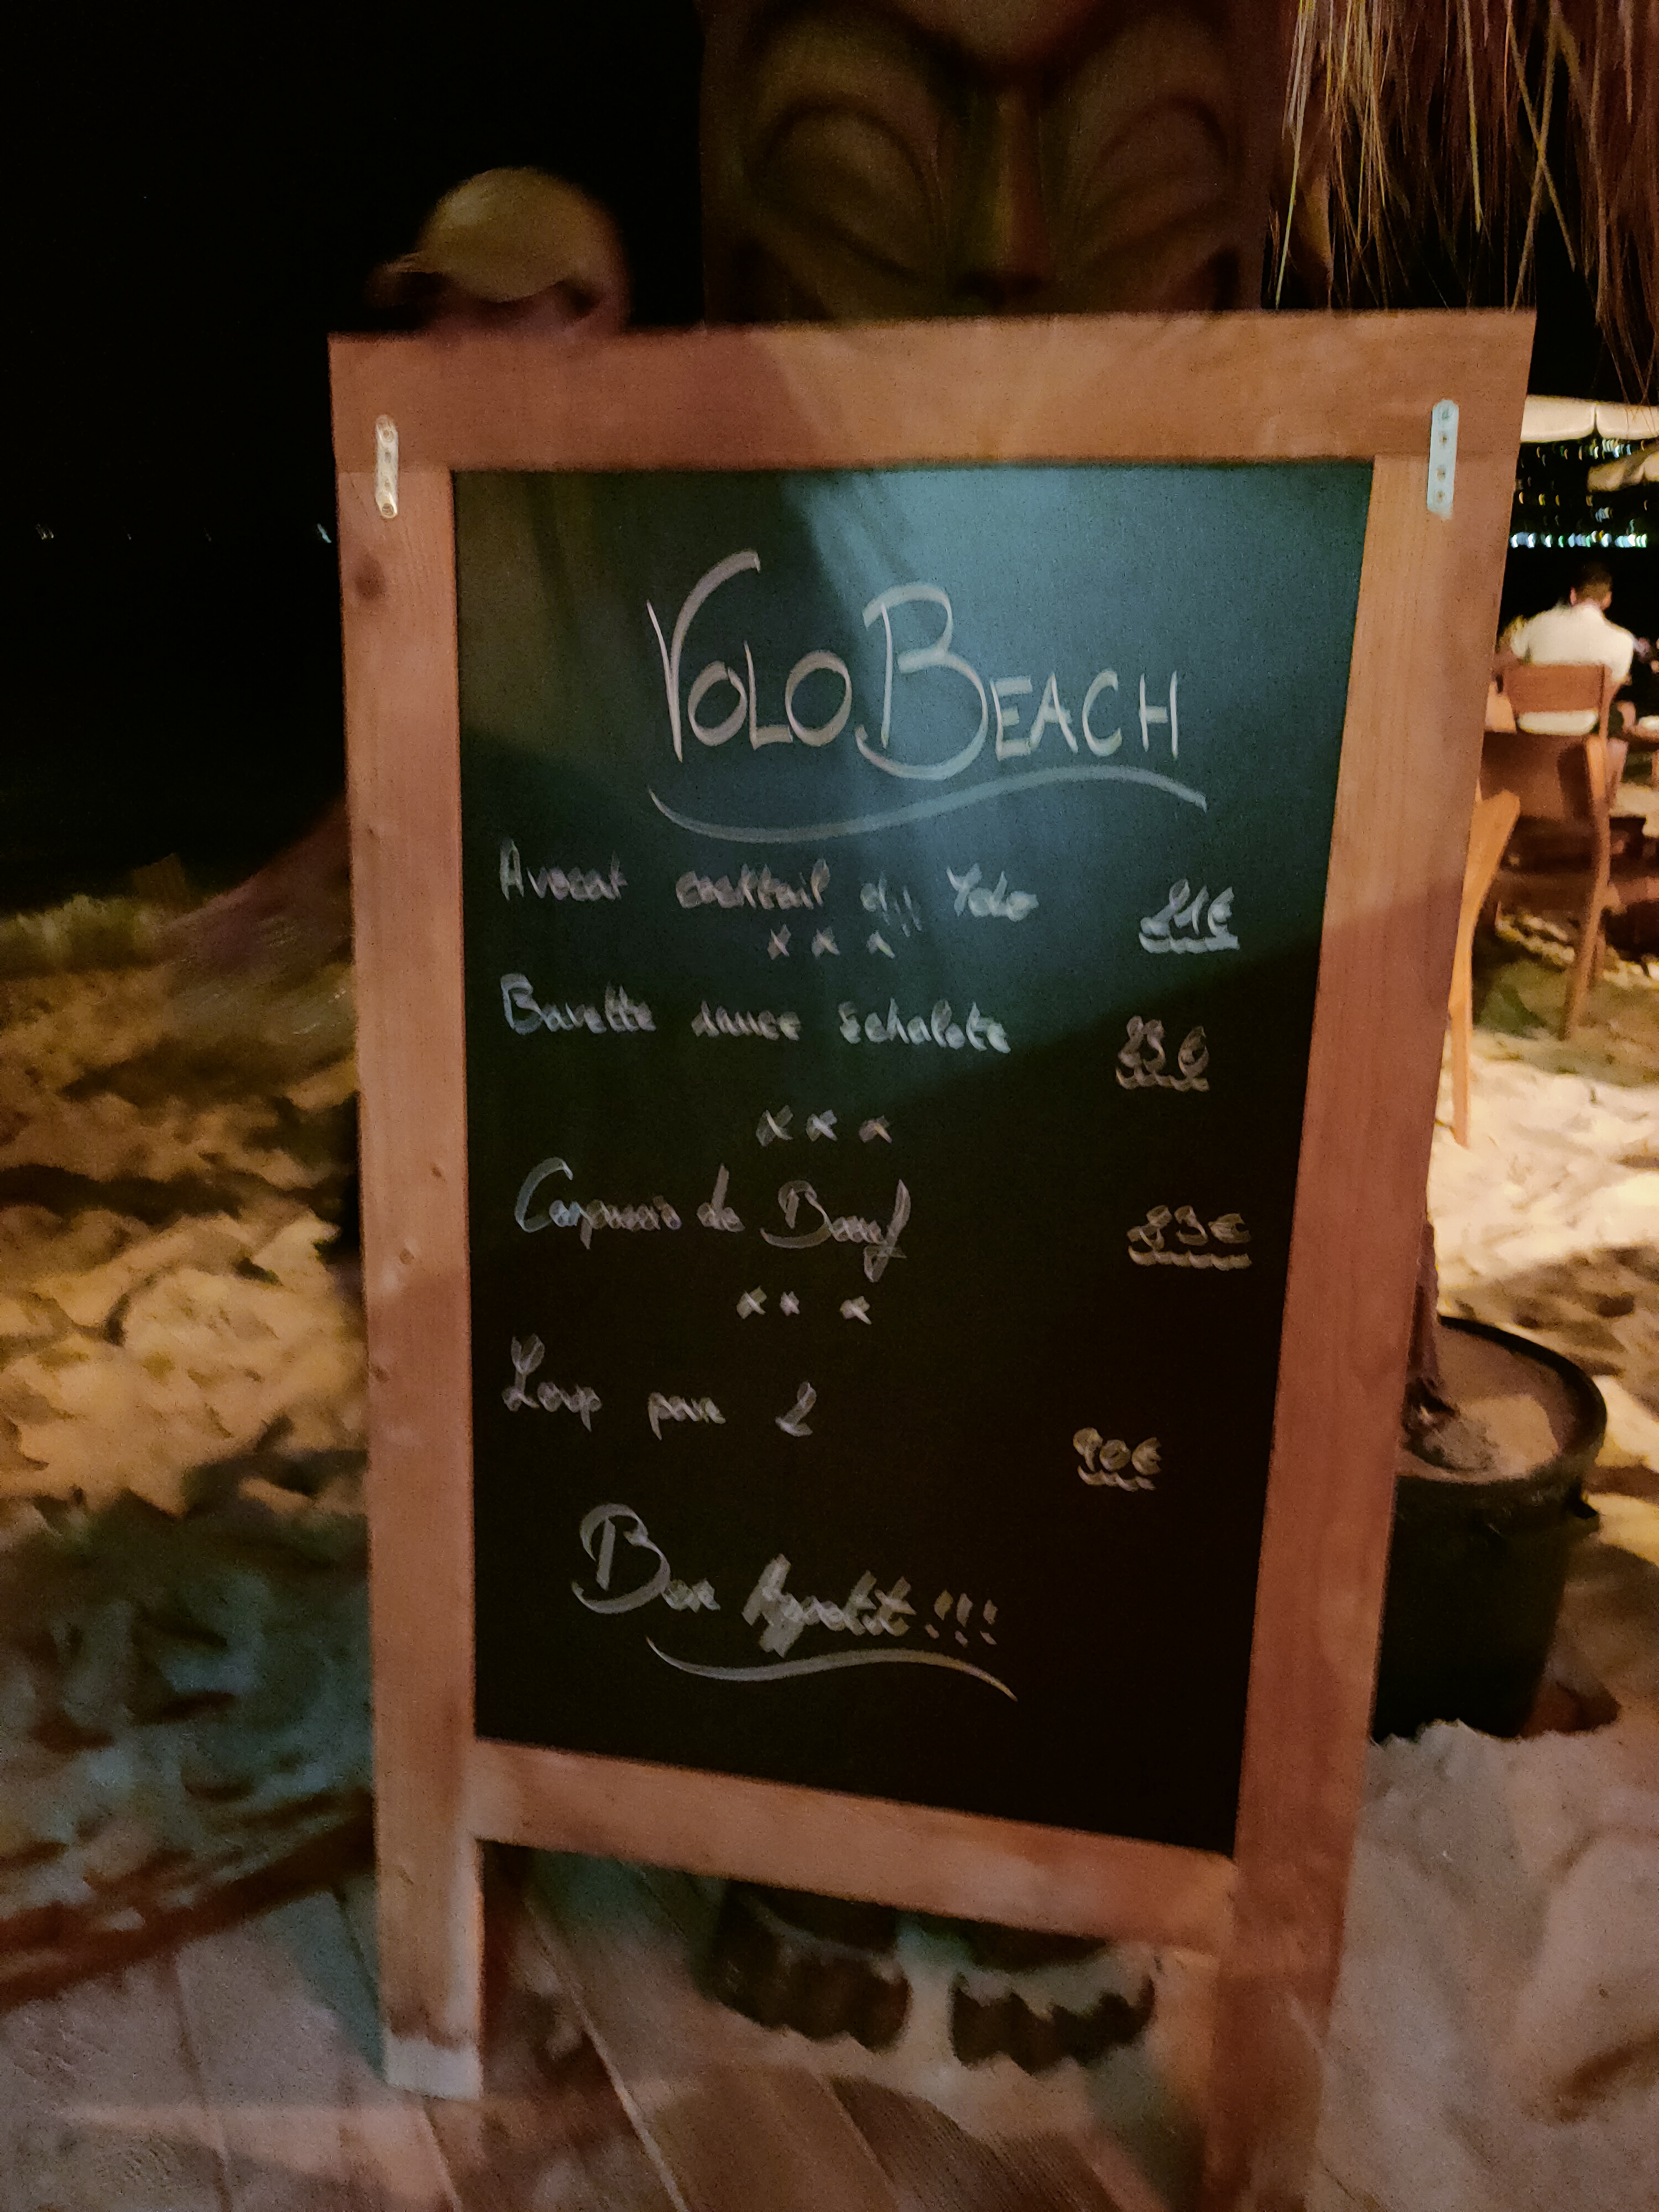 YOLO BEACH
Avocat cocktail du Yolo 21€
x x x
Bavette sauce Echalote
x x x
Carpaccio de Boeuf 23€
x x x
Loup pour 2
90€
Bon Appetit !!!